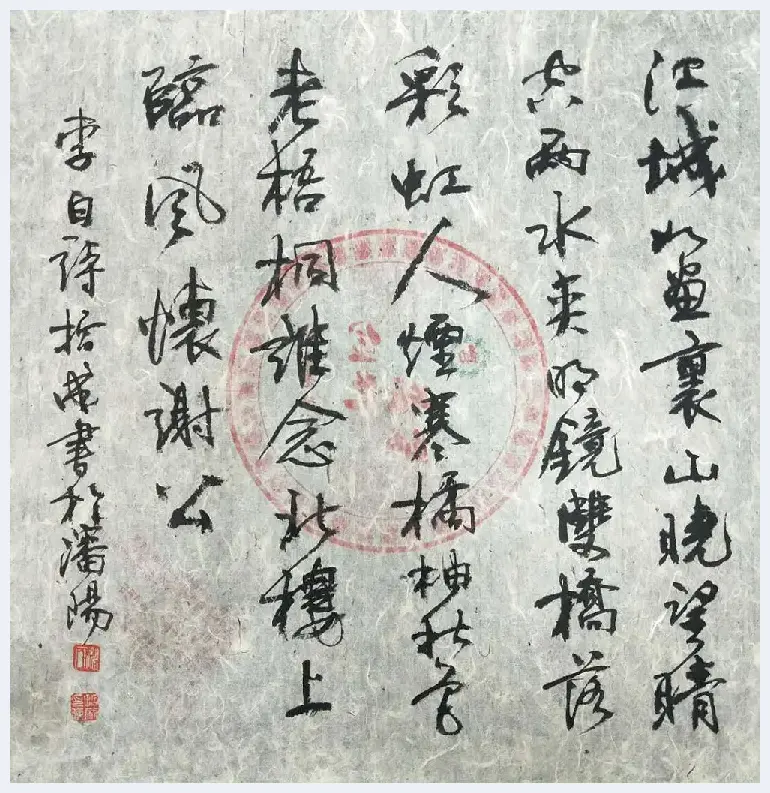 江城如畫裏山曉望晴
空兩水夾明鏡雙橋落
彩虹人煙寒橘柚秋色
老梧桐誰念北樓上
臨風懷謝公
李白詩書於瀋陽